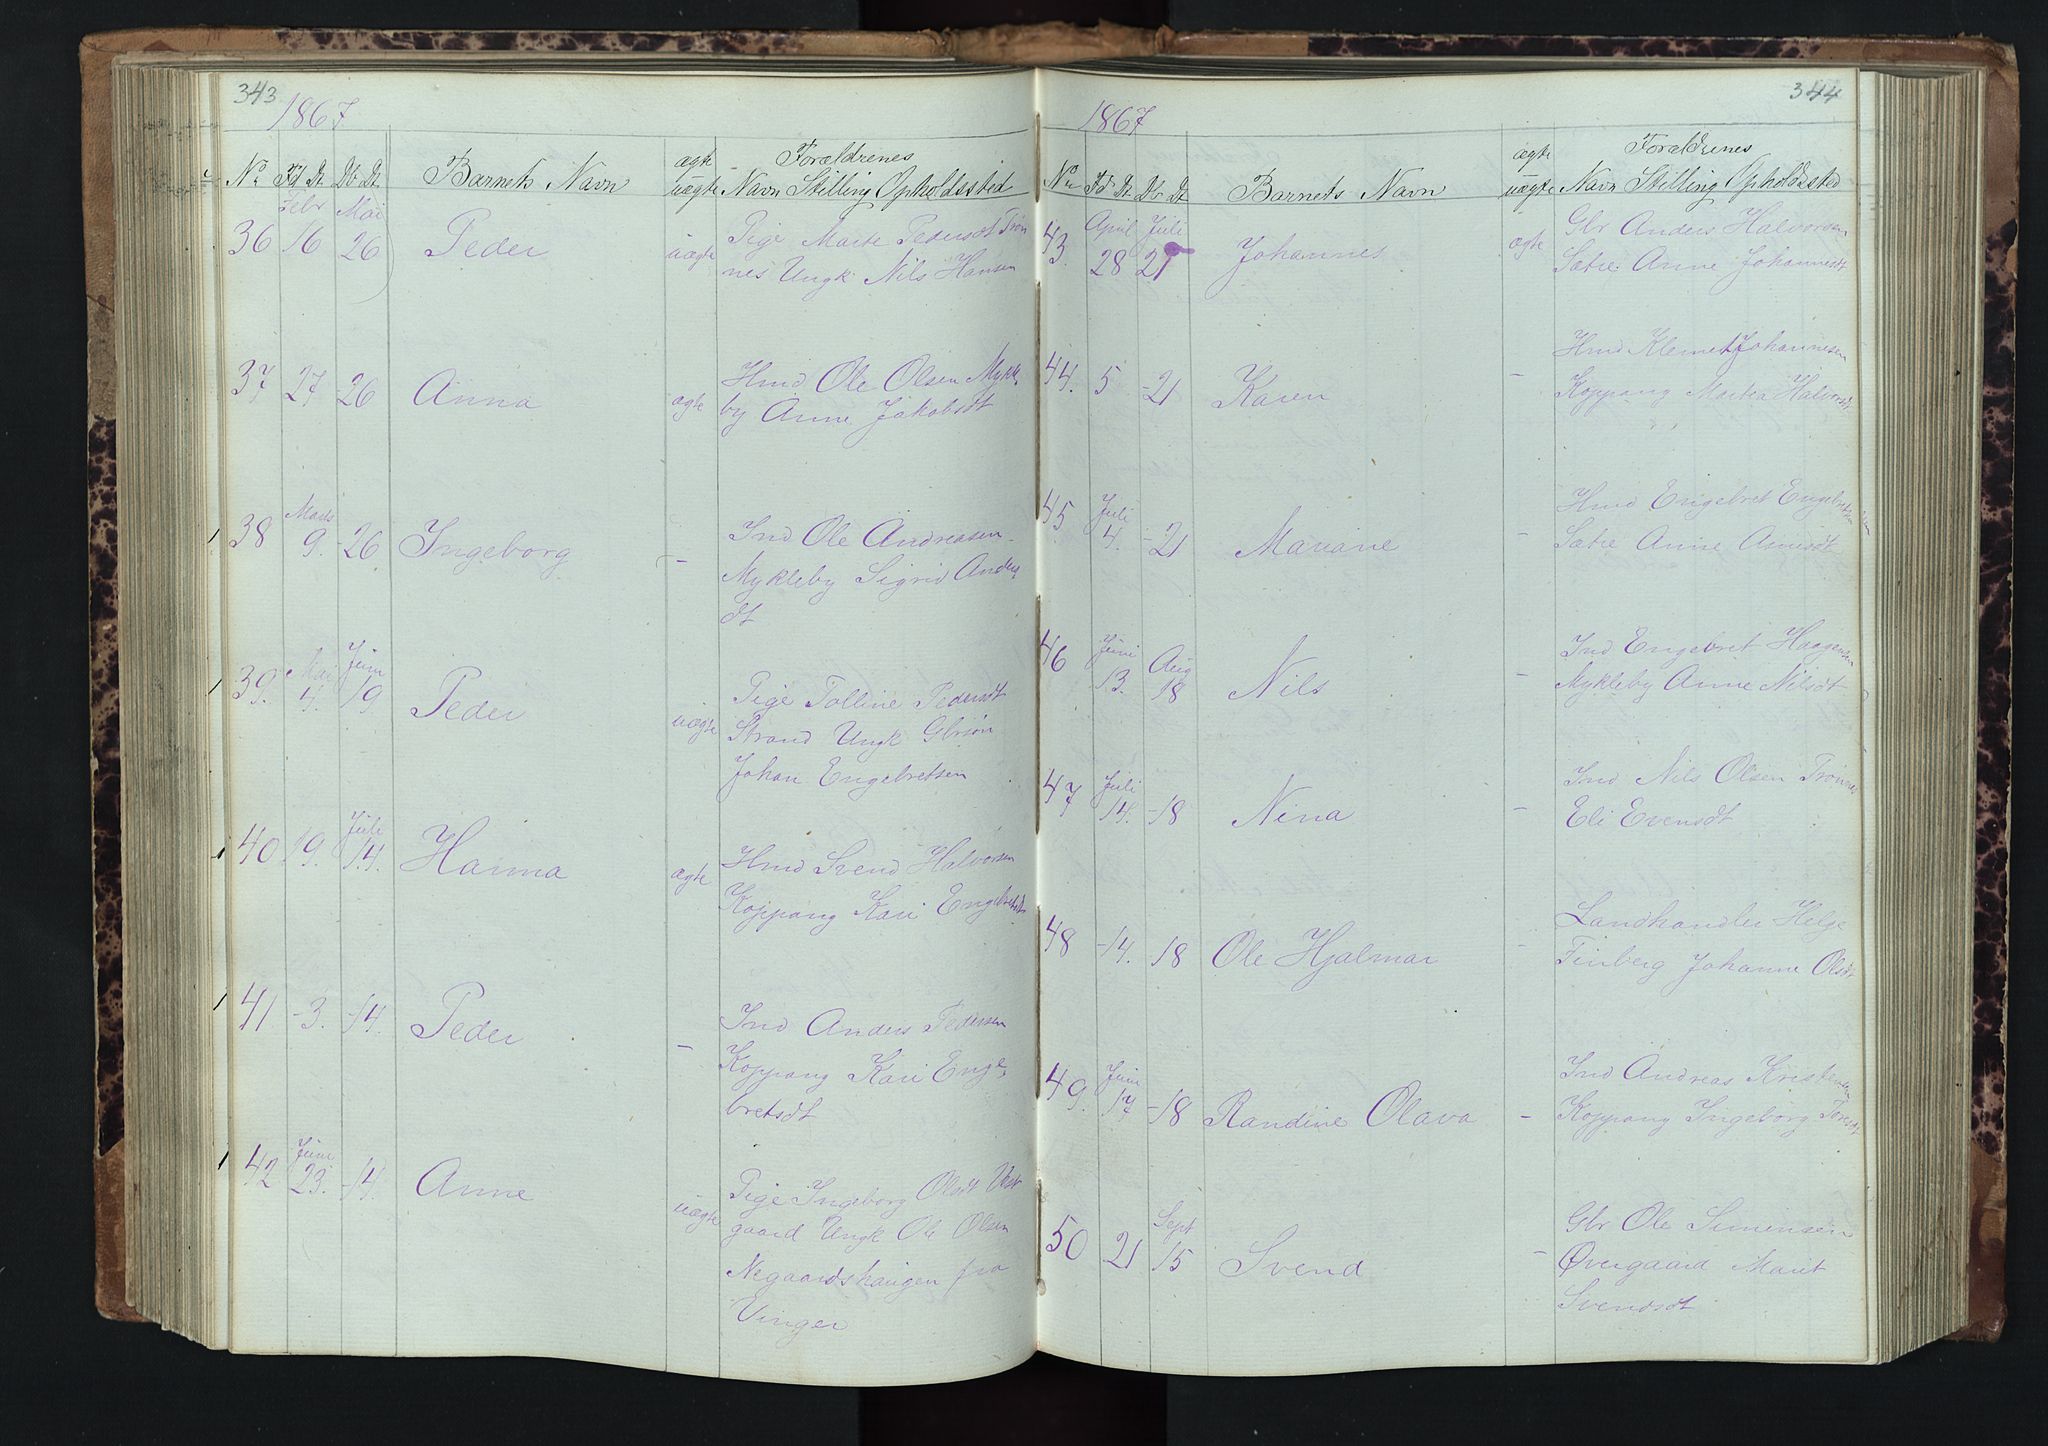 343
1867
No Fd Dt Db Dt Barnets Navn ægte uægte Forældrenes Navn Stilling Opholdssted
Febr Mai
36 16 26 Peder uægte Pige Marte Pedersdt Trøn
nes Ungk Nils Hansen
37 27 -26 Anna ægte Hmd Ole Olsen Mykle
by Anne Jakobsdt
Marts
38 9. -26 Ingeborg - Ind Ole Andreasen
Mykleby Sigrid Anders
dt
Mai Juni
39. 4. 19 Peder uægte Pige Tolline Pedersdt
Strand Ungk Gbrsøn
Johan Engebretsen
Juli
40 19. 14. Hanna ægte Hmd Svend Halvorsen
Koppang Kari Engebretsdt
41 -3. -14. Peder - Ind Anders Pedersen
Koppang Kari Enge
bretsdt
Juni
42 23. -14. Anne uægte Pige Ingeborg Olsdt Vest
gaard Ungk Ole Olsen
Negaardshaugen fra
Vinger
344
1867
No Fd Dt Db Dt Barnets Navn ægte uægte Forældrenes Navn Stilling Opholdssted
April Juli
43. 28 21 Johannes ægte Gbr Anders Halvorsen
Sætre Anne Johannesdt
44. 5 -21 Karen - Hmd Klemet Johannesen
Koppang Martea Halvorsdt
Juli
45. 4. -21 Mariane - Hmd Engebret Engebretsen
Sætre Anne Arnesdt
Juni Aug
46 13. 18 Nils - Ind Engebret Haagensen
Mykleby Anne Nilsdt
Juli
47 14. -18 Nina - Ind Nils Olsen Trønnes
Eli Evensdt
48 -14. 18 Ole Hjalmar - Landhandler Helge
Finberg Johanne Olsdt
Juni
49. 17 -18 Randine Olava - Ind Andreas Kristensen
Koppang Ingeborg Toresdt
Sept
50 21 15 Svend - Gbr Ole Simensen
Øvergaard Marit
Svendsdt